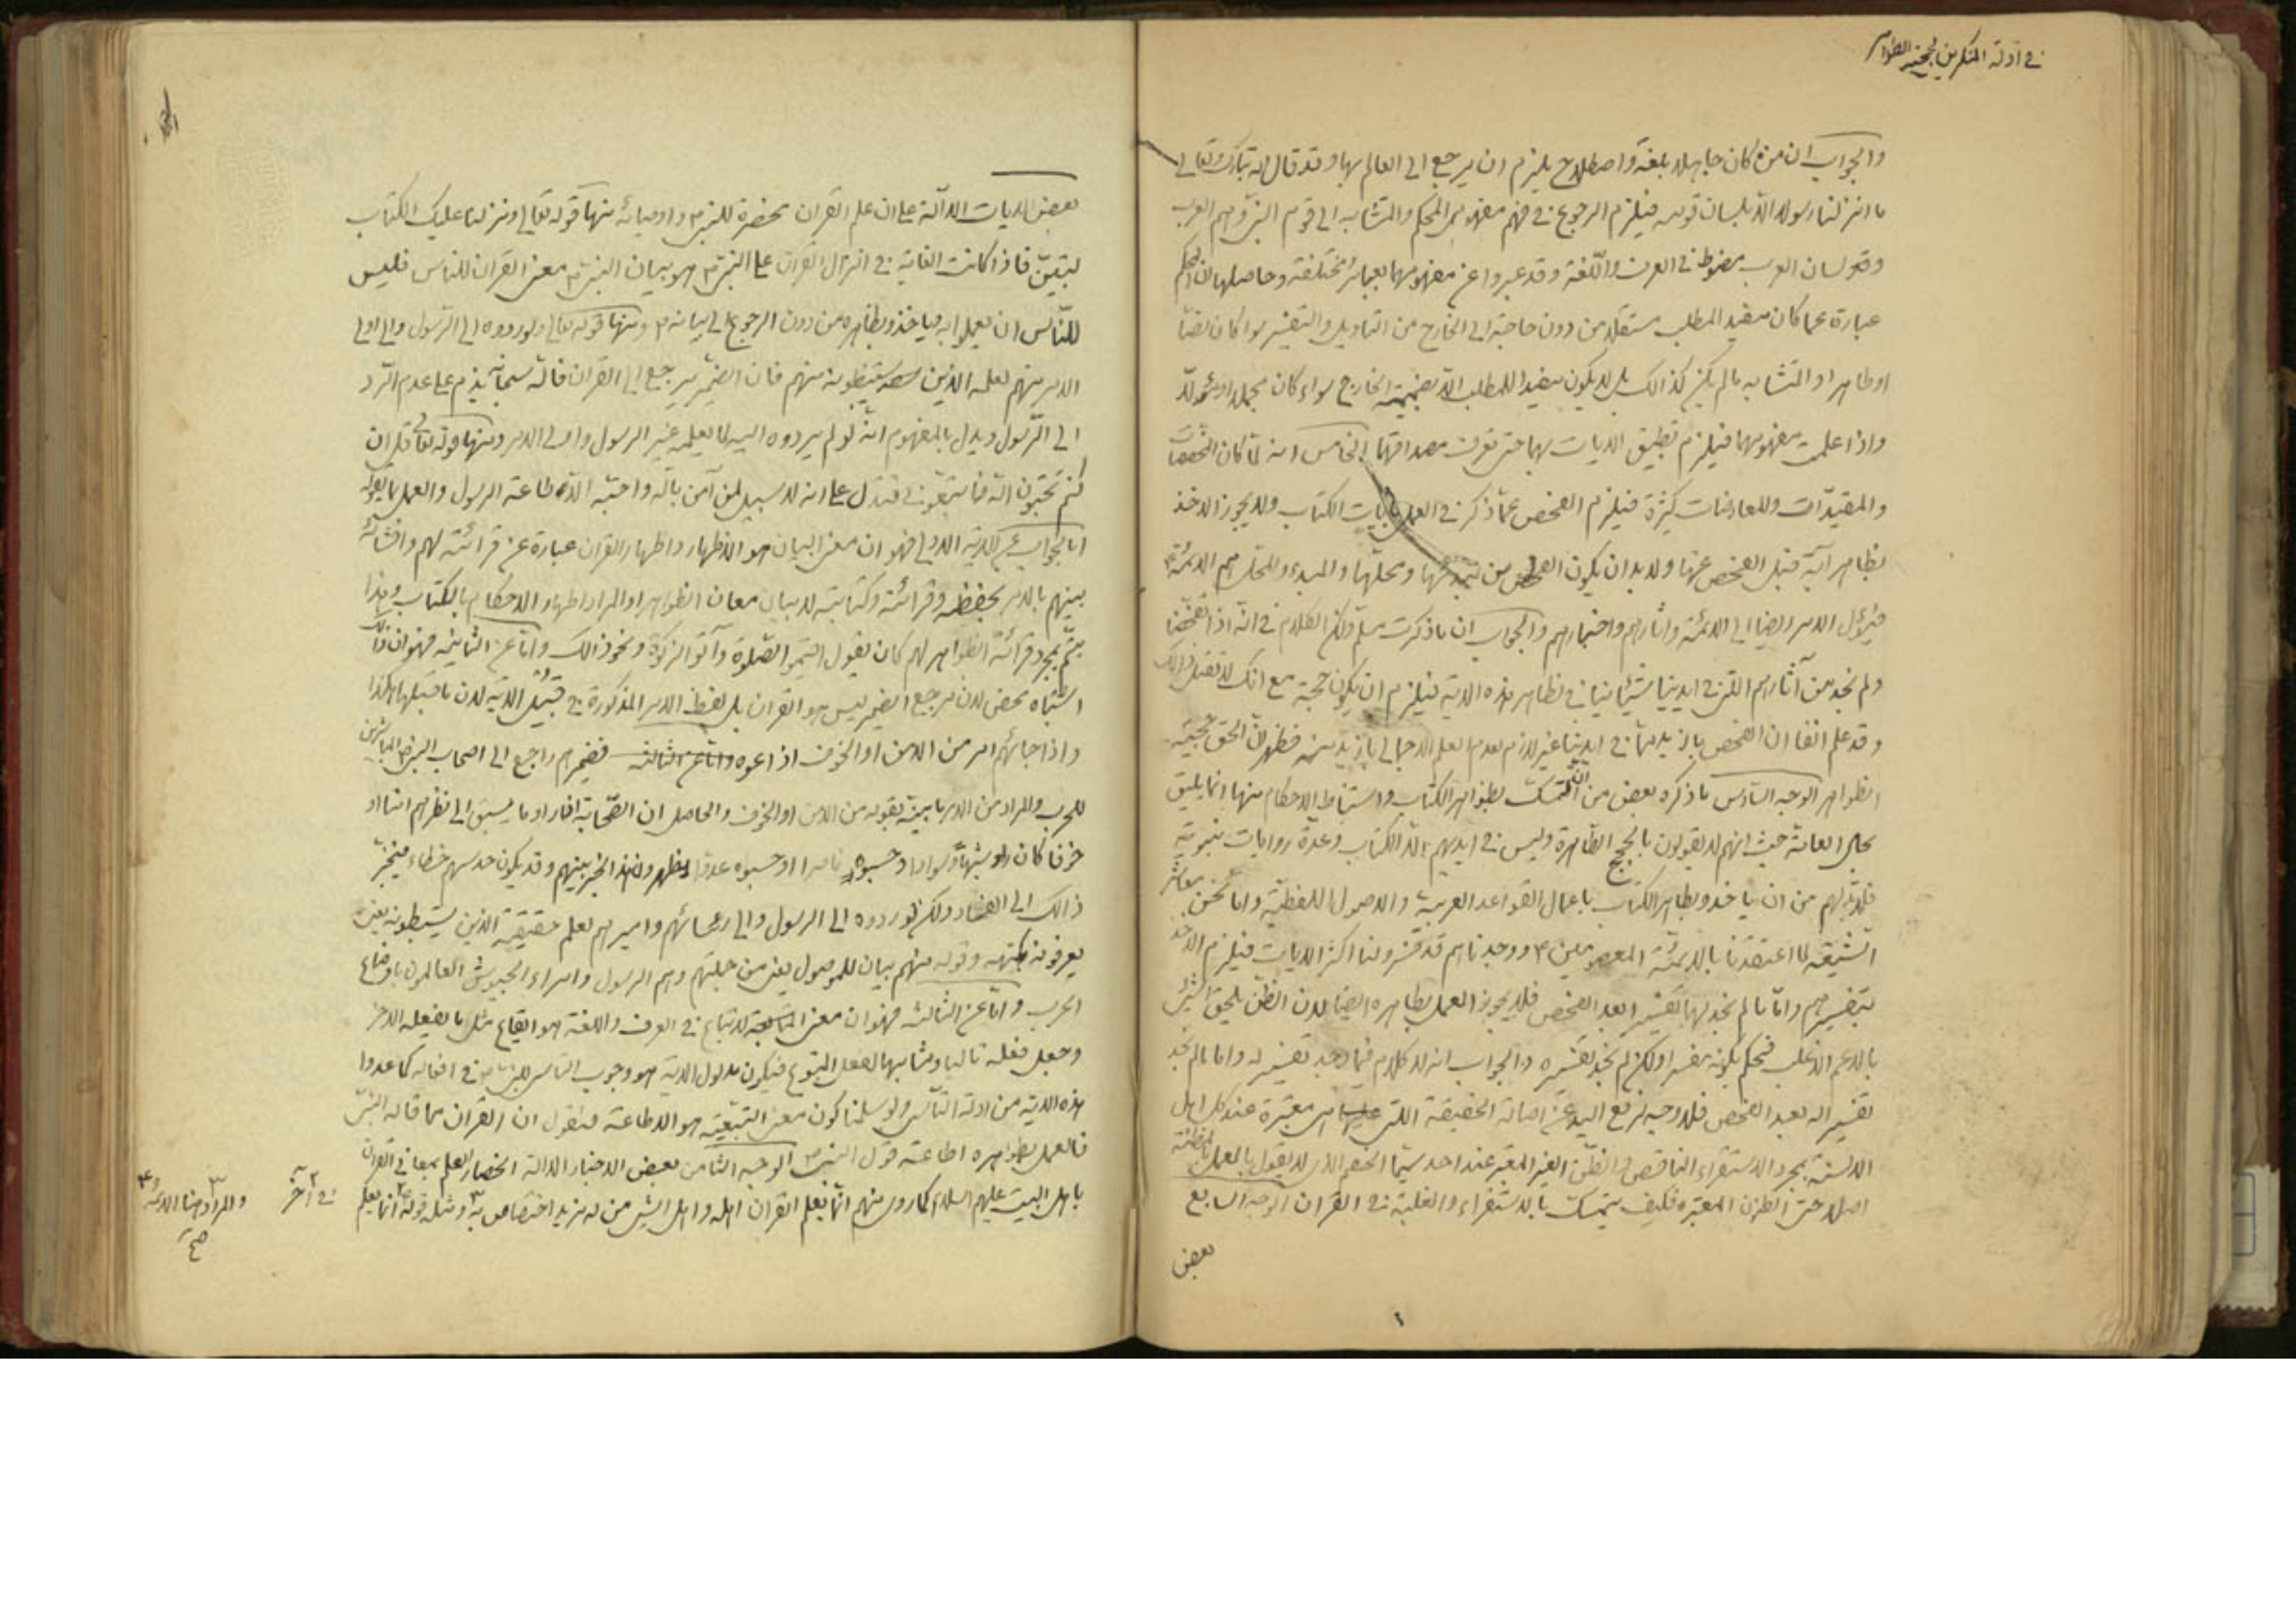 في ادلة المنكرين لحجية الظواهر
والجواب ان من كان جاهلا بلغة واصطلاح يلزم ان يرجع الى العالم بها وقد قال الله تبارك وتعالى
ما ارسلنا رسولا الا بلسان قومه فيلزم الرجوع في فهم مفهوم المحكم والمتشابه الى قوم النبي وهم العرب
ولسان العرب مضبوط في العرف واللغة وقد عبروا عن مفهومهما بعبائر مختلفة وحاصلها ان المحكم
عبارة عما كان مفيد المطلب مستقلا من دون حاجة الى الخارج من التاويل والتفسير سواء كان نصا
او ظاهرا والمتشابه ما لم يكن كذالك بل لا يكون مفيدا للمطلب الا بضميمة الخارج سواء كان مجملا او مؤولا
واذا علمت مفهومهما فيلزم تطبيق الايات بهما حتى تعرف مصداقهما الخامس انه لما كان المخصصات
والمقيدات والمعارضات كثيرة فيلزم الفحص عما ذكر في العمل بايات الكتاب ولا يجوز الاخذ
بظاهر آية قبل الفحص عنها ولا بد ان يكون الفحص من ومحلها والمبدء والمحل هم الائمة ع
فيؤل الامر ايضا الى الائمة واثارهم واخبارهم والجواب ان ما ذكرت مسلم ولكن الكلام في انه اذا تفحصنا
ولم نجد من آثارهم التي في ايدينا شيئا ينافي ظاهر هذه الاية فيلزم ان يكون حجة مع انك لا تقبل ذالك
وقد علم انفا ان الفحص بازيد مما في ايدينا غير لازم لعدم العلم الاجمالي بازيد منه فظهر ان الحق حجية
الظواهر الوجه السادس ما ذكره بعض من ان التمسك بظواهر الكتاب واستنباط الاحكام منها انما يليق
بحال العامة حيث انهم لا يقولون بالحجج الطاهرة وليس في ايديهم الا الكتاب وعدة روايات نبوية
فلا بد لهم من ان ياخذوا بظاهر الكتاب باعمال القواعد العربية والاصول اللفظية واما نحن معاشر
الشيعة لما اعتقدنا بالائمة المعصومين ع ووجدناهم قد فسروا لنا اكثر الايات فيلزم الاخذ
بتفسيرهم واما ما لم نجد لها تفسيرا بعد الفحص فلا يجوز العمل بظاهره ايضا لان الظن يلحق الشيء
بالاعم الاغلب فنحكم بكونه مفسرا ولكن لم نجد تفسيره والجواب انه لا كلام فيما وجد تفسير له واما ما لم نجد
تفسيرا له بعد الفحص فلا وجه لرفع اليد عن اصالة الحقيقة التي هي معتبرة عند كل اهل
الالسنة بمجرد الاستقراء الناقص والظن الغير المعتبر عند احد سيما الخصم الذي لا يقول بالعمل بالمظنة
اصلا حتى الظن المعتبرة فكيف يتمسك بالاستقراء والغلبة في القران الوجه السابع
بعض
بعض الايات الدالة على ان علم القران منحصرة للنبي ص واوصيائه منها قوله تعالى ونزلنا عليك الكتاب
لتبين فاذا كانت الغاية في انزال القران على النبي ص هو بيان النبي ص معنى القران للناس فليس
للناس ان يعملوا به وياخذوا بظاهره من دون الرجوع الى بيانه ص ومنها قوله تعالى ولو ردوه الى الرسول والى اولى
الامر منهم لعلمه الذين يستنبطونه منهم فان الضمير يرجع الى القران فالله سبحانه يذم على عدم الرد
الى الرسول ويدل بالمفهوم انه لو لم يردوه اليه لما يعلمه غير الرسول واولى الامر ومنها قوله تعالى قل ان
كنتم تحبون الله فاتبعوني فتدل على انه لا سبيل لمن آمن بالله واحبه الا طاعة الرسول والعمل بما يقوله
اما الجواب عن الاية الاولى فهو ان معنى البيان هو الاظهار واظهار القران عبارة عن قرائته لهم وافشائه
بينهم بالامر بحفظه وقرائته وكتابته لا بيان معان الظواهر او المراد اظهار الاحكام بالكتاب وهذا
يتم بمجرد قرائة الظواهر لهم كان يقول اقيموا الصلوة وآتوا الزكوة ونحو ذالك واما عن الثانية فهو ان ذالك
اشتباه محض لان مرجع الضمير ليس هو القران بل لفظ الامر المذكورة في قبيل الاية لان ما قبلها هكذا
واذا جائهم امر من الامن او الخوف اذاعوه فضميرهم راجع الى اصحاب النبي ص المباشرين
للحرب والمراد من الامر ما بينه بقوله من الامن او الخوف والحاصل ان الصحابة اذا راوا ما يسبق الى نظرهم امنا او
خوفا كان راوا شبها وسوادا وحسبوه ناصرا او حسبوه عدوا يظهرون هذا الخبر بينهم وقد يكون حدسهم خطاء فينجر
ذالك الى الفساد ولكن لو ردوه الى الرسول والى رؤسائهم واميرهم لعلم حقيقته الذين يستنبطونه يعني
يعرفونه بكنهه وقوله منهم بيان للموصول يعني من جملتهم وهم الرسول وامراء الجيوش العالمون باوضاع
الحرب واما عن الثالثة فهو ان معنى الاتباع في العرف واللغة هو ايقاع مثل ما يفعله الاخر
وجعل فعله تاليا ومشابها لفعل المتبوع فيكون مدلول الاية هو وجوب التاسي للنبي ص في افعاله كما عدوا
هذه الاية من ادلة التاسي ولو سلمنا كون معنى التبعية هو الاطاعة فنقول ان القران مما قاله النبي
فالعمل بظواهره اطاعة قول النبي ص الوجه الثامن بعض الاخبار الدالة انحصار العلم بمعاني القران
باهل البيت عليهم السلام كما روى منهم انما يعلم القران اهله واهل الشيء من له مزيد اختصاص به ومثله قوله انما يعلم
في آخر
والمراد هنا الائمة ع
صح